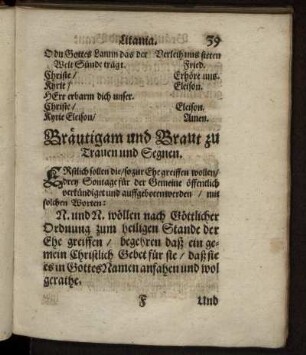 Litania. 39
O du Gottes Lamm das der Verleih uns steten
Welt Sünde trägt. Fried.
Christe / Erhöre uns.
Kyrie / Eleison.
HErr erbarm dich unser.
Christe / Eleison.
Kyrie Eleison / Amen.
Bräutigam und Braut zu
Trauen und Segnen.
ERstlich sollen die / so zur Ehe greiffen wollen /
drey Sontage für der Gemeine öffentlich
verkündiget und auffgebotenwerden / mit
solchen Worten:
N. und N. wöllen nach Göttlicher
Ordnung zum heiligen Stande der
Ehe greiffen / begehren daß ein ge-
mein Christlich Gebet für sie / daß sie
es in Gottes Namen anfahen und wol
gerathe.
F Und